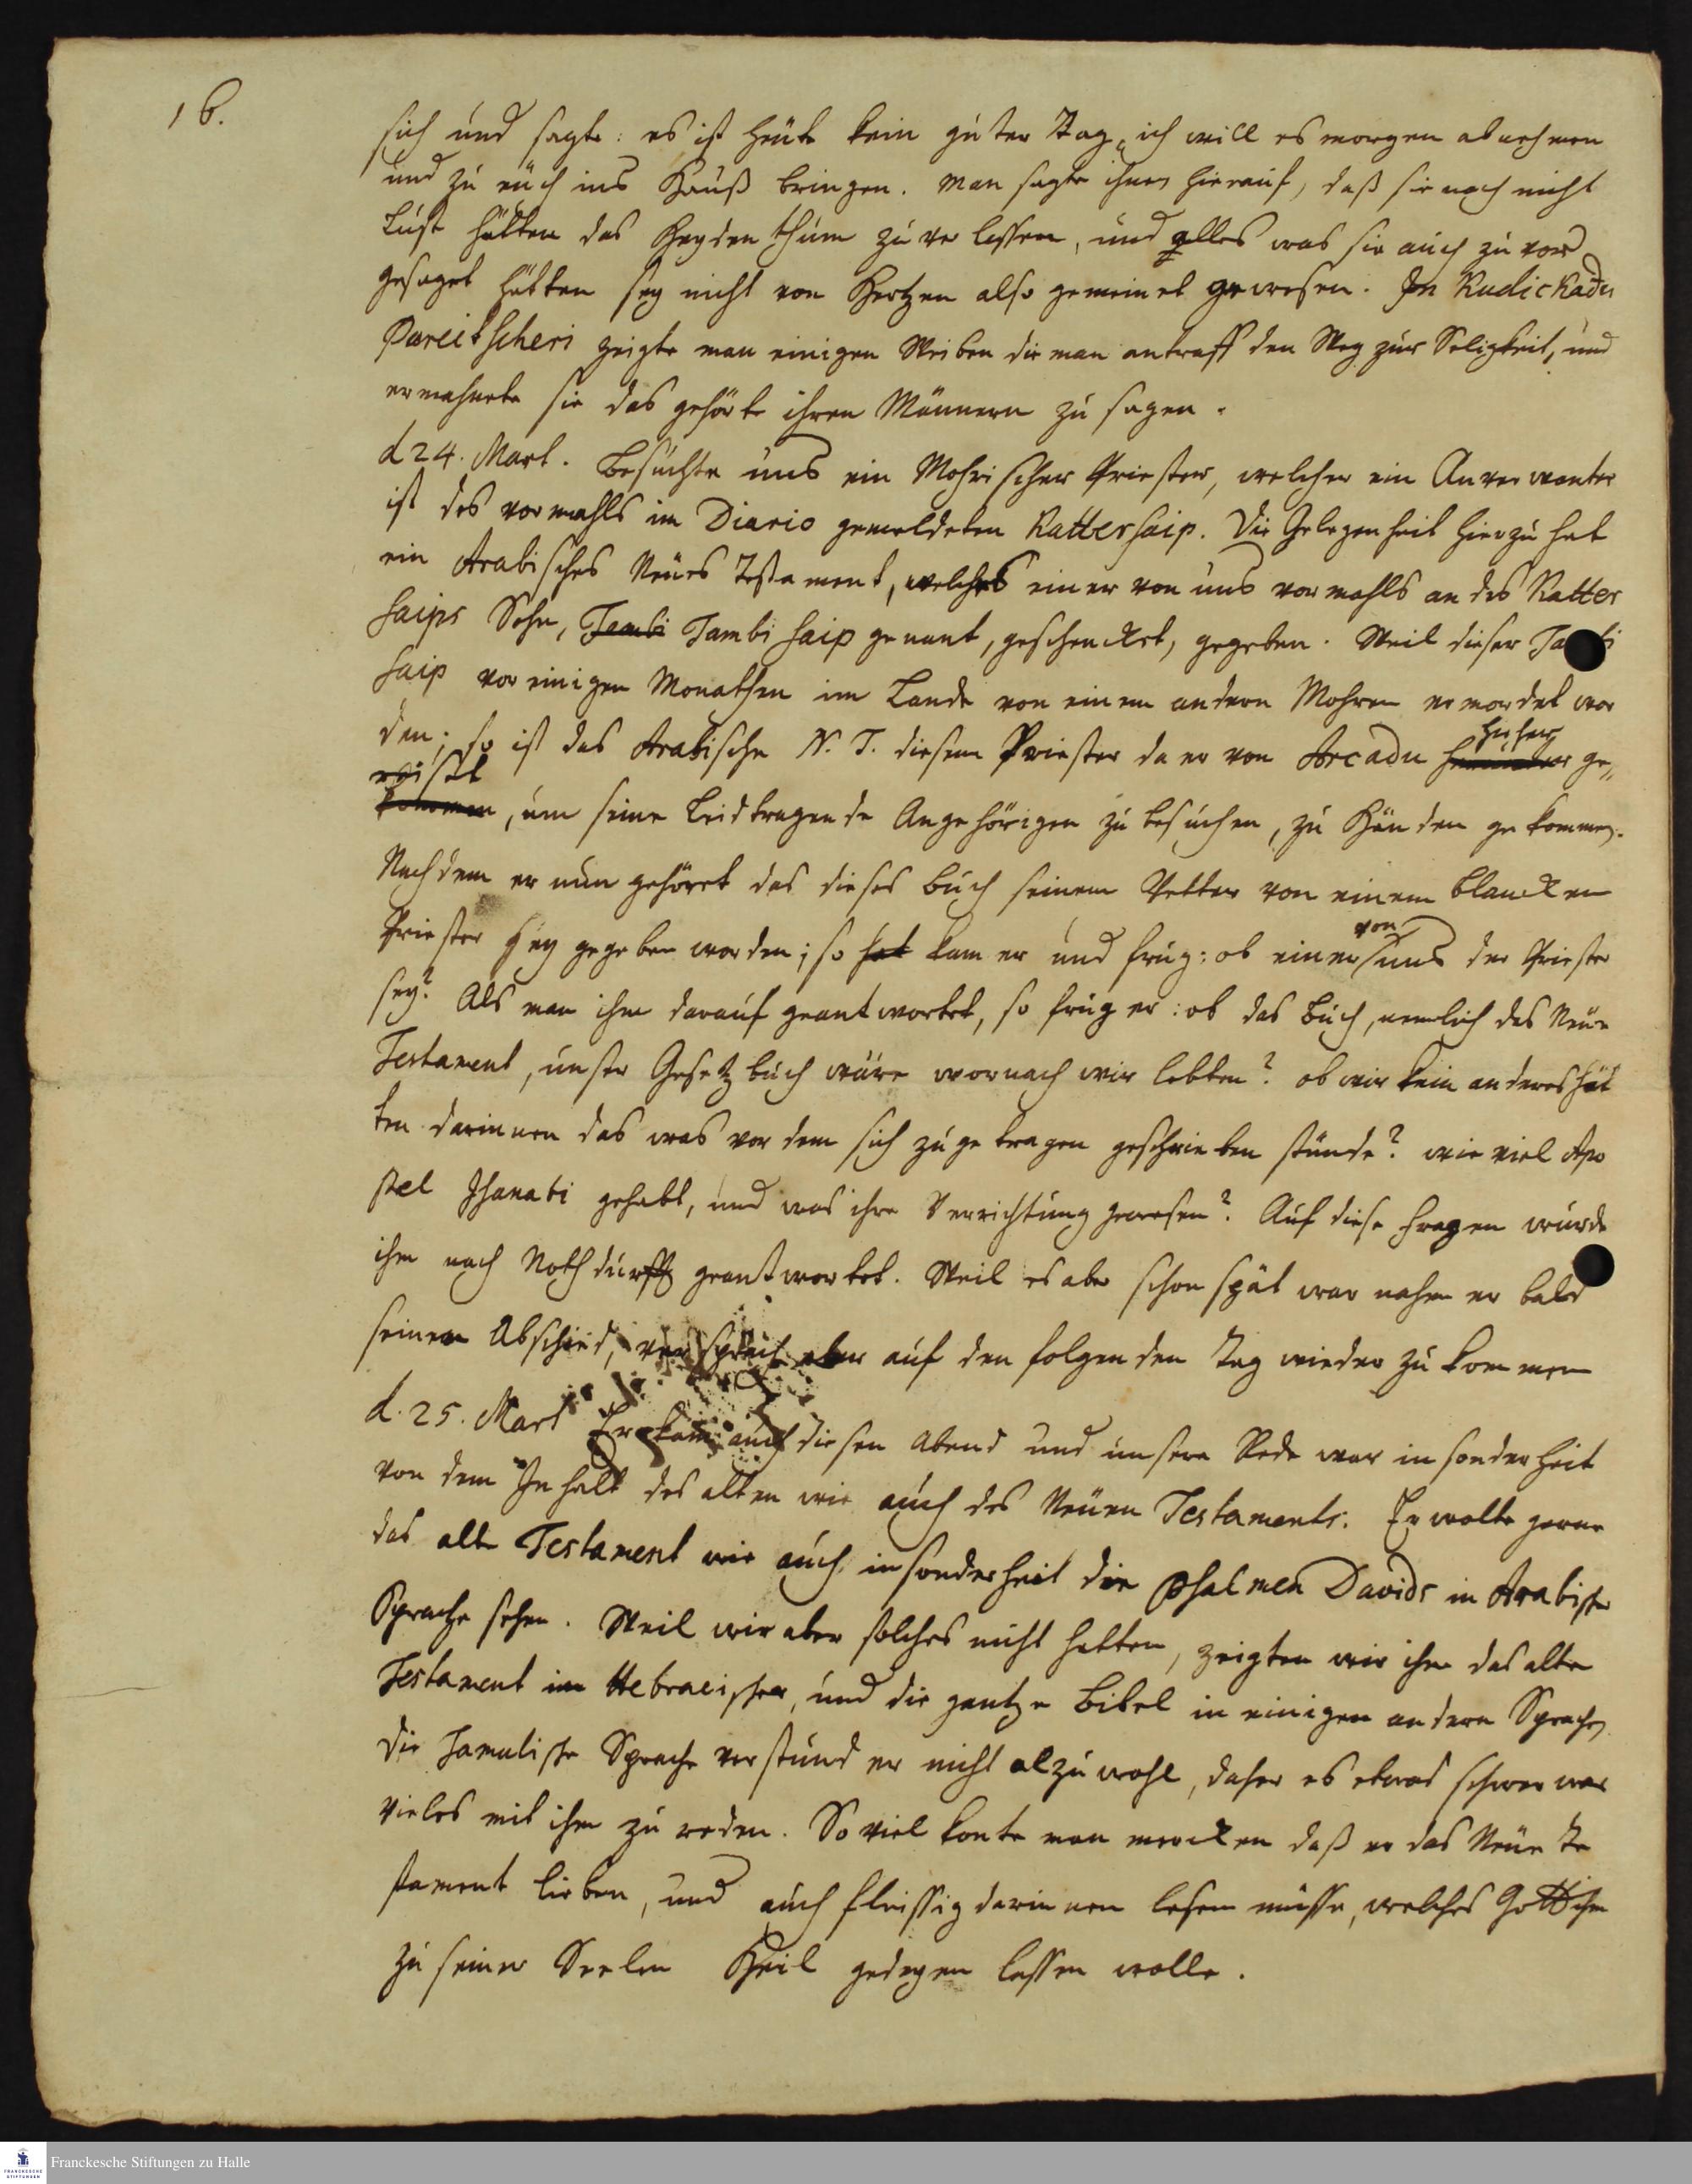 16.
sich und sagte: es ist heute kein guter Tag, ich will es morgen abnehmen
und zu euch ins Hauß bringen. Man sagte ihnen hierauf, daß sie noch nicht
Lust hätten das Heydenthum zu verlassen, und alles was sie auch zuvor
gesaget hätten sey nicht von Hertzen also gemeinet gewesen. In Kudickadu
Pareitscheri zeigte man einigen Weibern die man antraff den Weg zur Seligkeit, und
ermahnete sie das gehörte ihren Männern zu sagen.
d 24. Mart. Besuchte uns ein Mohrischer Priester, welcher ein Anverwanter
ist des vormahls im Diario gemeldeten Kattersaip. Die Gelegenheit hierzu hat
ein Arabisches Neues Testament, welches einer von uns vormahls an des Katter
saips Sohn, Tambi Tambi saip genant, geschencket, gegeben. Weil dieser Tambi
saip vor einigen Monathen im Lande von einem andern Mohren ermordet wor
den; so ist das Arabische N. T. diesem Priester da er von Arcadu hieher ge„
reiset, um seine Leidtragende Angehörigen zu besuchen, zu Händen gekommen.
Nachdem er nun gehöret das dieses Buch seinem Vetter von einem blancken
Priester sey gegeben worden; so hat kam er und frug: ob einer von uns der Priester
sey? Als man ihm darauf geantwortet, so frug er: ob das Buch, nemlich das Neue
Testament, unser Gesetzbuch wäre wornach wir lebten? ob wir kein anderes hät
ten darinnen das was vor dem sich zugetragen geschrieben stünde? wie viel Apo
stel Ishanabi gehabt, und was ihre Verrichtung gewesen? Auf diese Fragen wurde
ihm nach Nothdurfft geantwortet. Weil es aber schon spät war nahm er bald
seinen Abschied, versprach aber auf den folgenden Tag wieder zu kommen
d. 25. Mart Er kam auch diesen Abend und unsere Rede war insonderheit
von dem Inhalt des alten wie auch des Neuen Testaments. Er wolte gerne
das alte Testament wie auch insonderheit die Psalmen Davids in Arabischer
Sprache sehen. Weil wir aber solches nicht hatten, zeigten wir ihm das alte
Testament im Hebraeischen, und die gantze Bibel in einigen andern Sprachen
Die Tamulische Sprache verstund er nicht alzu wohl, daher es etwas schwer war
vieles mit ihm zu reden. So viel konte man mercken daß er das Neue Te
stament lieben, und auch fleissig darinnen lesen müsse, welches Gott ihm
zu seiner Seelen Heil gedeyen lassen wolle.
Franckesche Stiftungen zu Halle
FRANCKESCHE
STIFTUNGEN